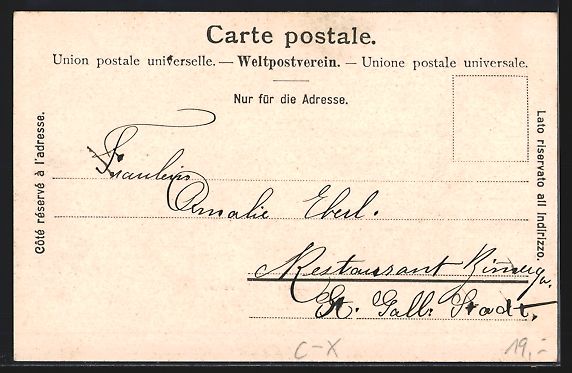 Carte postale.
Union postale universelle. — Weltpostverein. — Unione postale universale.
Nur für die Adresse.
Côté réservé à l'adresse.
Lato riservato all indirizzo.
Fräulein
Amalie Eberl.
Restaurant
St. Gall. Stadt.
C-X
19,-